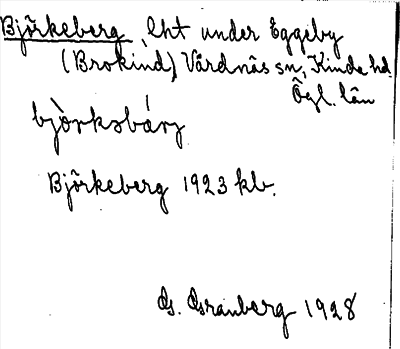 Björkeberg lht under Eggeby
(Brokind) Vårdnäs sn, Kinda hd.
Ögl. län
bjòrksbárj
Björkeberg 1923 kb.
G. Granberg 1928